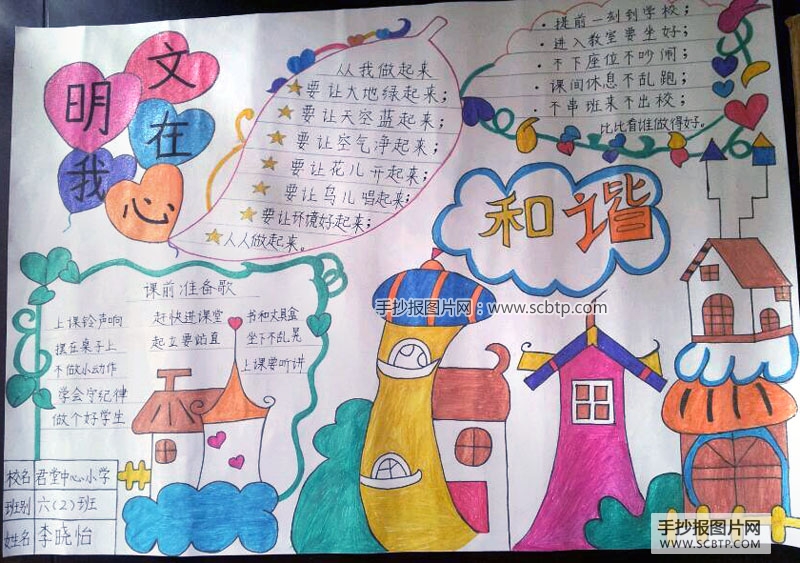 文明在我心
从我做起来
要让大地绿起来；
要让天空蓝起来；
要让空气净起来；
要让花儿开起来；
要让鸟儿唱起来；
要让环境好起来；
人人做起来。
·提前一刻到学校；
·进入教室要坐好；
·不下座位不吵闹；
·课间休息不乱跑；
·不串班来不出校；
比比看谁做得好。
和谐
手抄报图片网：www.scbtp.com
课前准备歌
上课铃声响 赶快进课堂 书和文具盒
摆在桌子上 起立要站直 坐下不乱晃
不做小动作 上课要听讲
学会守纪律
做个好学生
校名 君堂中心小学
班别 六(2)班
姓名 李晓怡
手抄报图片网
WWW.SCBTP.COM